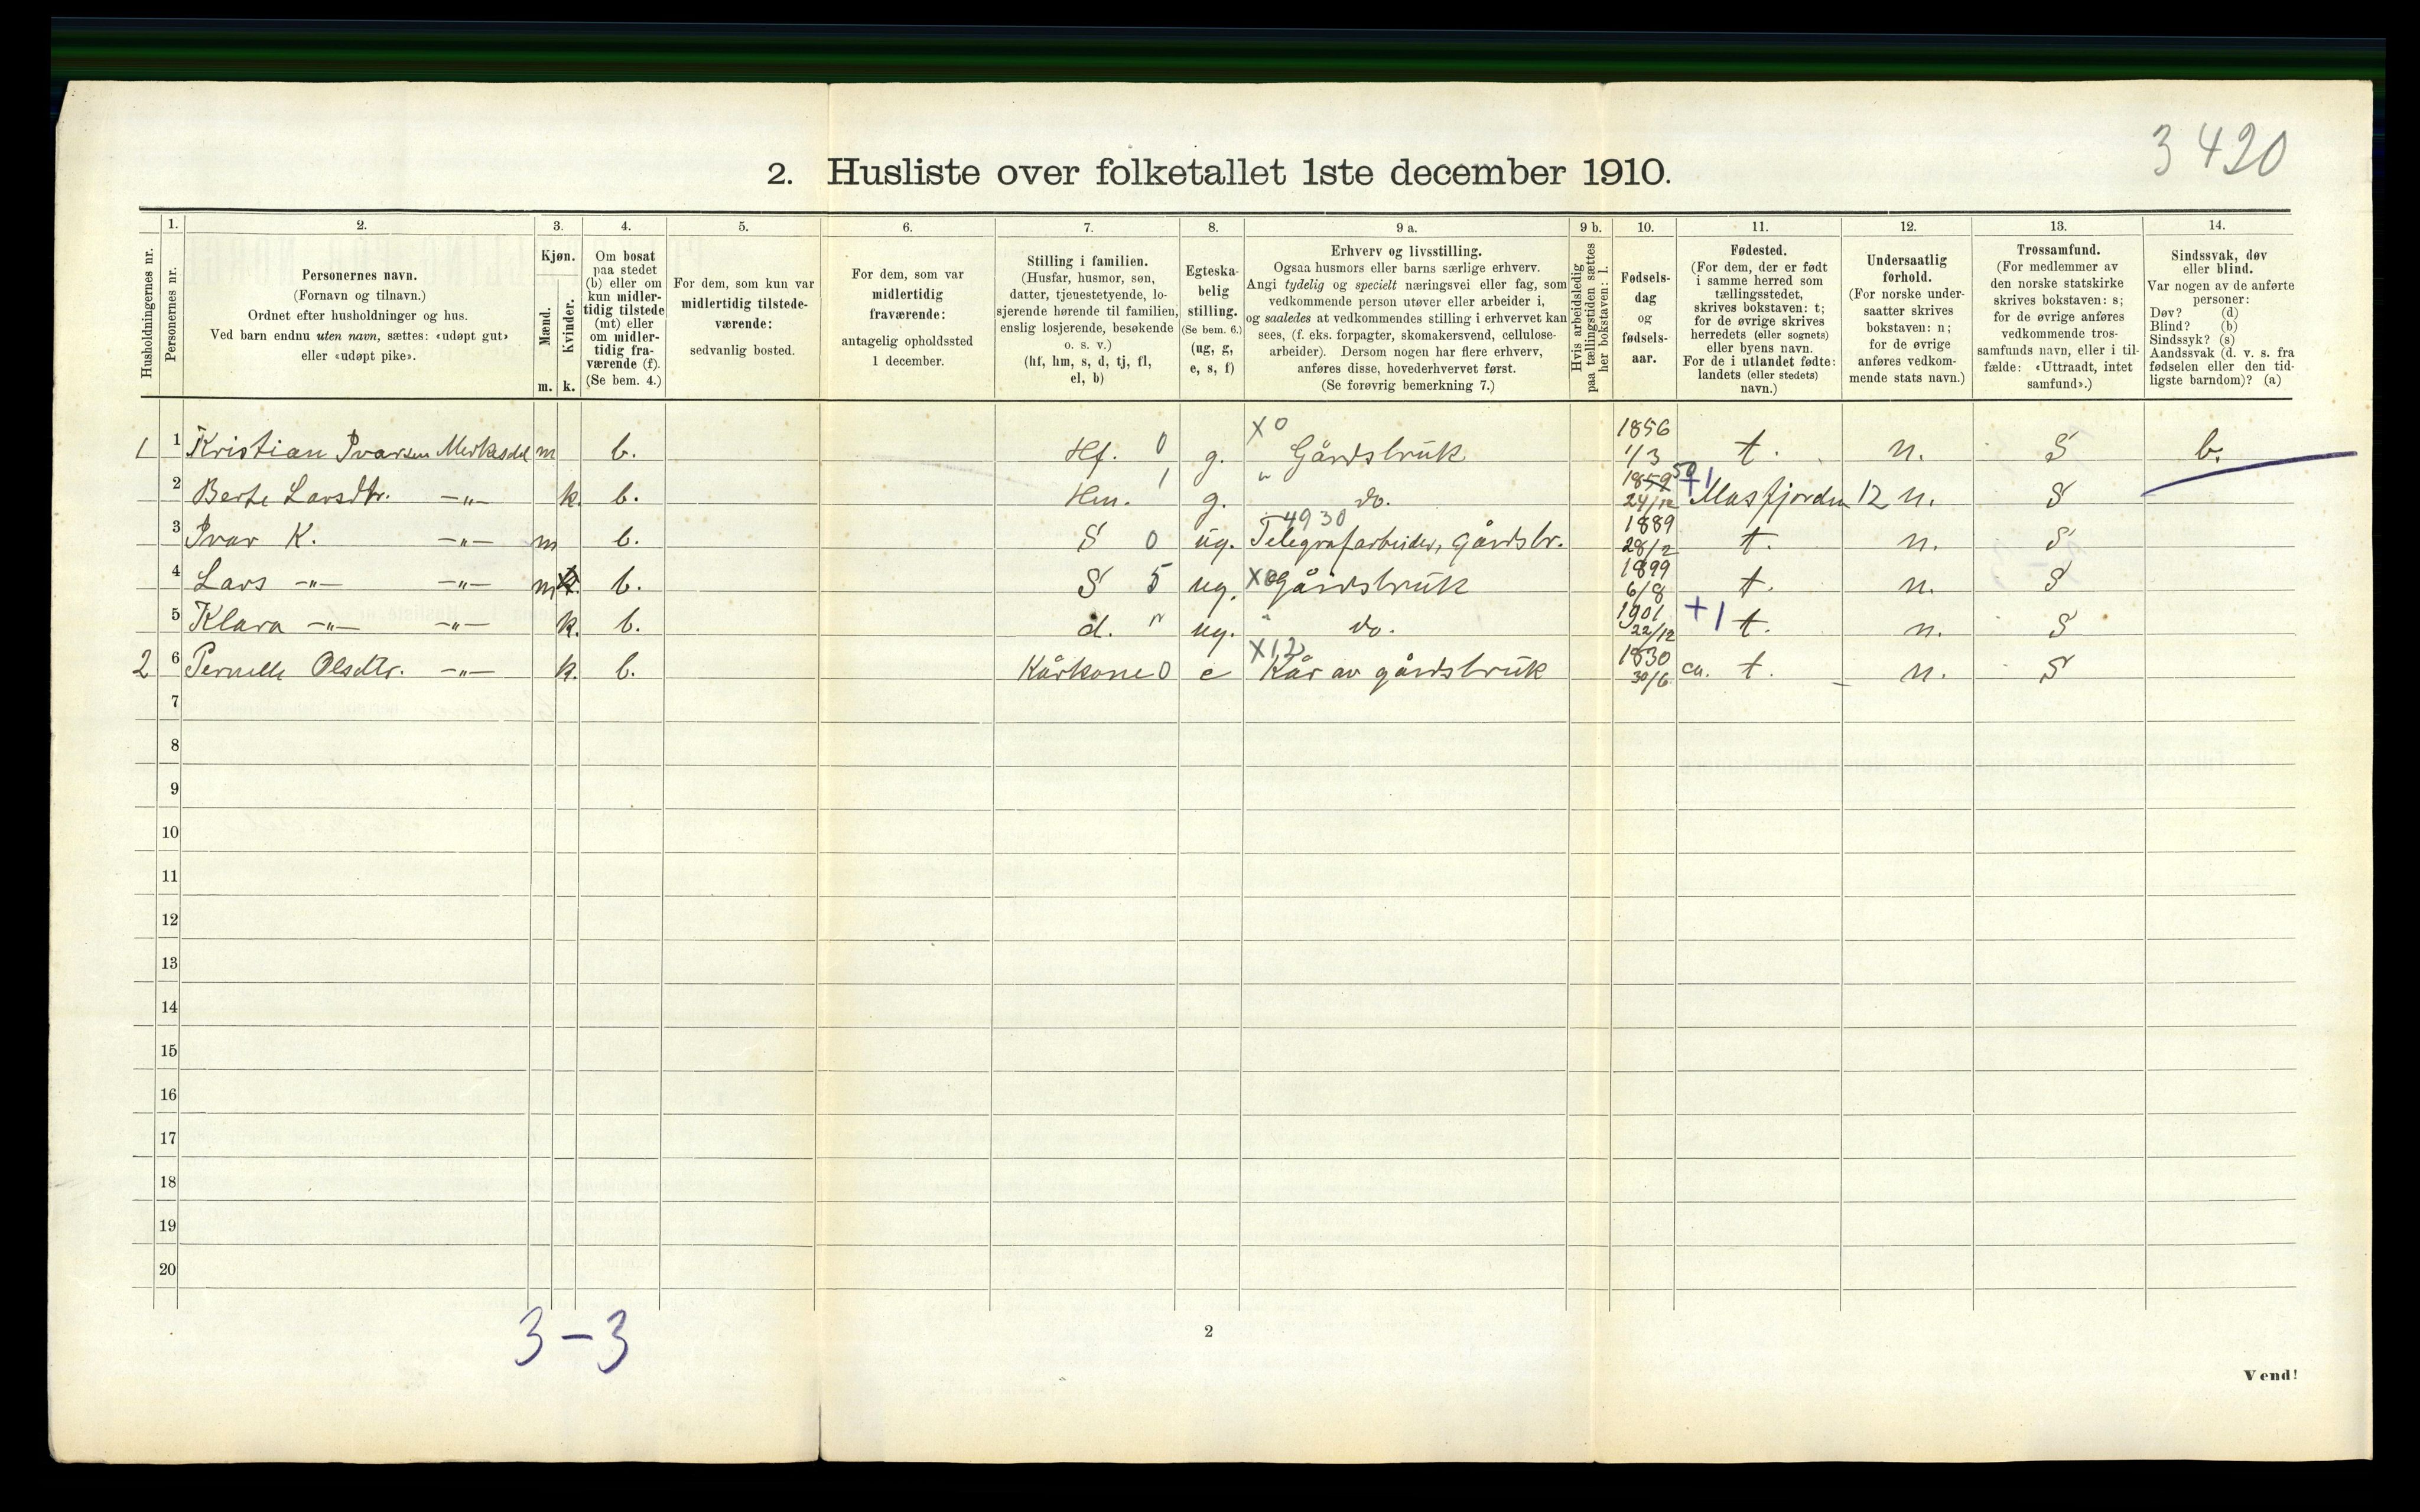 3420
2. Husliste over folketallet 1ste december 1910.
Husholdningernes nr.
1.
Personernes nr.
2.
Personernes navn.
(Fornavn og tilnavn.)
Ordnet efter husholdninger og hus.
Ved barn endnu uten navn, sættes: «udøpt gut»
eller «udøpt pike».
3.
Kjøn.
Mænd.
Kvinder.
m. k.
4.
Om bosat
paa stedet
(b) eller om
kun midler-
tidig tilstede
(mt) eller
om midler-
tidig fra-
værende (f).
(Se bem. 4.)
5.
For dem, som kun var
midlertidig tilstede-
værende:
sedvanlig bosted.
6.
For dem, som var
midlertidig
fraværende:
antagelig opholdssted
1 december.
7.
Stilling i familien.
(Husfar, husmor, søn,
datter, tjenestetyende, lo-
sjerende hørende til familien,
enslig losjerende, besøkende
o. s. v.)
(hf, hm, s, d, tj, fl,
el, b)
8.
Egteska-
belig
stilling.
(Se bem. 6.)
(ug, g,
e, s, f)
9 a.
Erhverv og livsstilling.
Ogsaa husmors eller barns særlige erhverv.
Angi tydelig og specielt næringsvei eller fag, som
vedkommende person utøver eller arbeider i,
og saaledes at vedkommendes stilling i erhvervet kan
sees, (f. eks. forpagter, skomakersvend, cellulose-
arbeider). Dersom nogen har flere erhverv,
anføres disse, hovederhvervet først.
(Se forøvrig bemerkning 7.)
9 b.
Hvis arbeidsledig
paa tællingstiden sættes
her bokstaven: l.
10.
Fødsels-
dag
og
fødsels-
aar.
11.
Fødested.
(For dem, der er født
i samme herred som
tællingsstedet,
skrives bokstaven: t;
for de øvrige skrives
herredets (eller sognets)
eller byens navn.
For de i utlandet fødte:
landets (eller stedets)
navn.)
12.
Undersaatlig
forhold.
(For norske under-
saatter skrives
bokstaven: n;
for de øvrige
anføres vedkom-
mende stats navn.)
13.
Trossamfund.
(For medlemmer av
den norske statskirke
skrives bokstaven: s;
for de øvrige anføres
vedkommende tros-
samfunds navn, eller i til-
fælde: «Uttraadt, intet
samfund».)
14.
Sindssvak, døv
eller blind.
Var nogen av de anførte
personer:
Døv? (d)
Blind? (b)
Sindssyk? (s)
Aandssvak (d. v. s. fra
fødselen eller den tid-
ligste barndom)? (a)
1 1 Kristian Ivarsen m b. Hf. 0 g. X0 Gårdsbruk 1856 1/3 t. n. S b.
2 Berte Larsdtr. -"- k. b. Hm. 1 g. " do. 1859 50 24/12 +1 Masfjorden 12 n. S
3 Ivar K. -"- m b. S 0 ug. 4930 Telegrafarbeider, Gårdsbr. 1889 28/2 t. n. S
4 Lars -"- -"- m k. b. S 5 ug. X0 Gårdsbruk 1899 6/8 t. n. S
5 Klara -"- -"- k. b. d. " ug. " do. 1901 22/12 +1 t. n. S
2 6 Pernelle Olsdtr. -"- k. b. Kårkone 0 e X12 Kår av gårdsbruk 1830 30/6 ca. t. n. S
7
8
9
10
11
12
13
14
15
16
17
18
19
20
3-3
2
Vend!